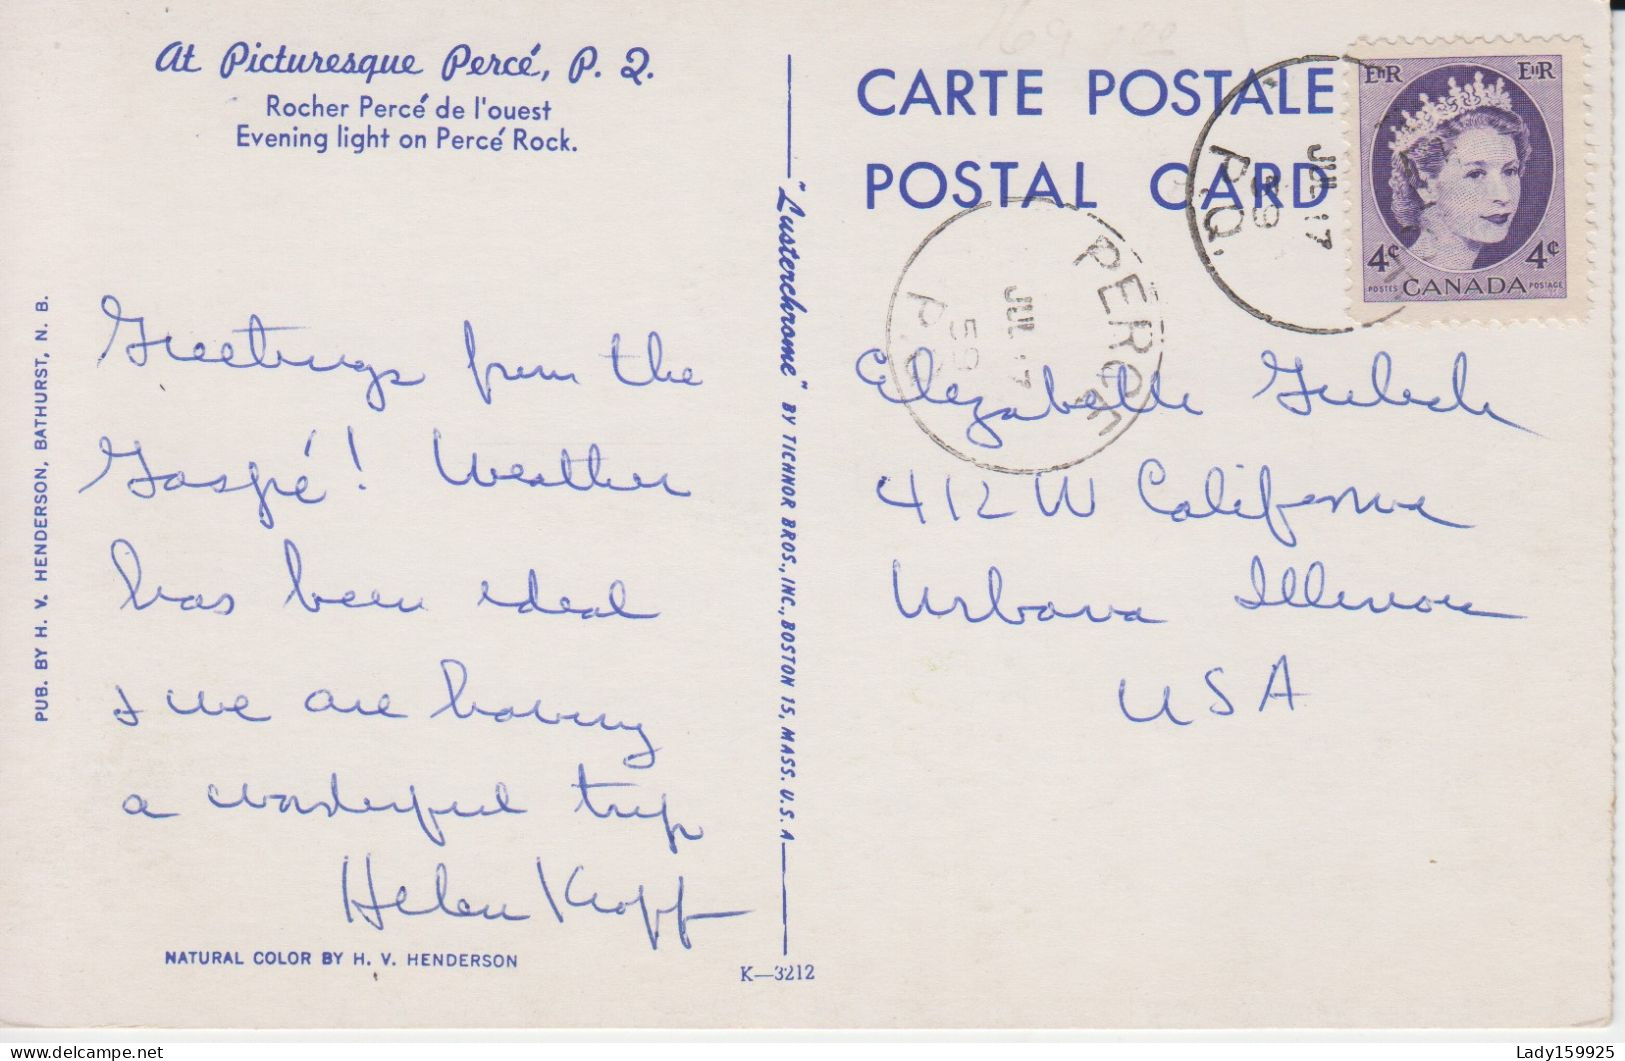 At Picturesque Percé, P. Q.
Rocher Percé de l'ouest
Evening light on Percé Rock.
PUB. BY H. V. HENDERSON, BATHURST, N. B.
Greetings from the
Gaspé! Weather
has been ideal
& we are having
a wonderful trip
Helen Kropf
NATURAL COLOR BY H. V. HENDERSON
"Lusterchrome" BY TICHNOR BROS., INC., BOSTON 15, MASS. U.S.A
K—3212
CARTE POSTALE
POSTAL CARD
EIIR EIIR
4¢ 4¢
POSTES CANADA POSTAGE
JUL 17
59
P.Q.
PERCE
JUL 17
59
P.Q.
Elizabeth
412 W California
Urbana Illinois
USA
Lady159925
delcampe.net